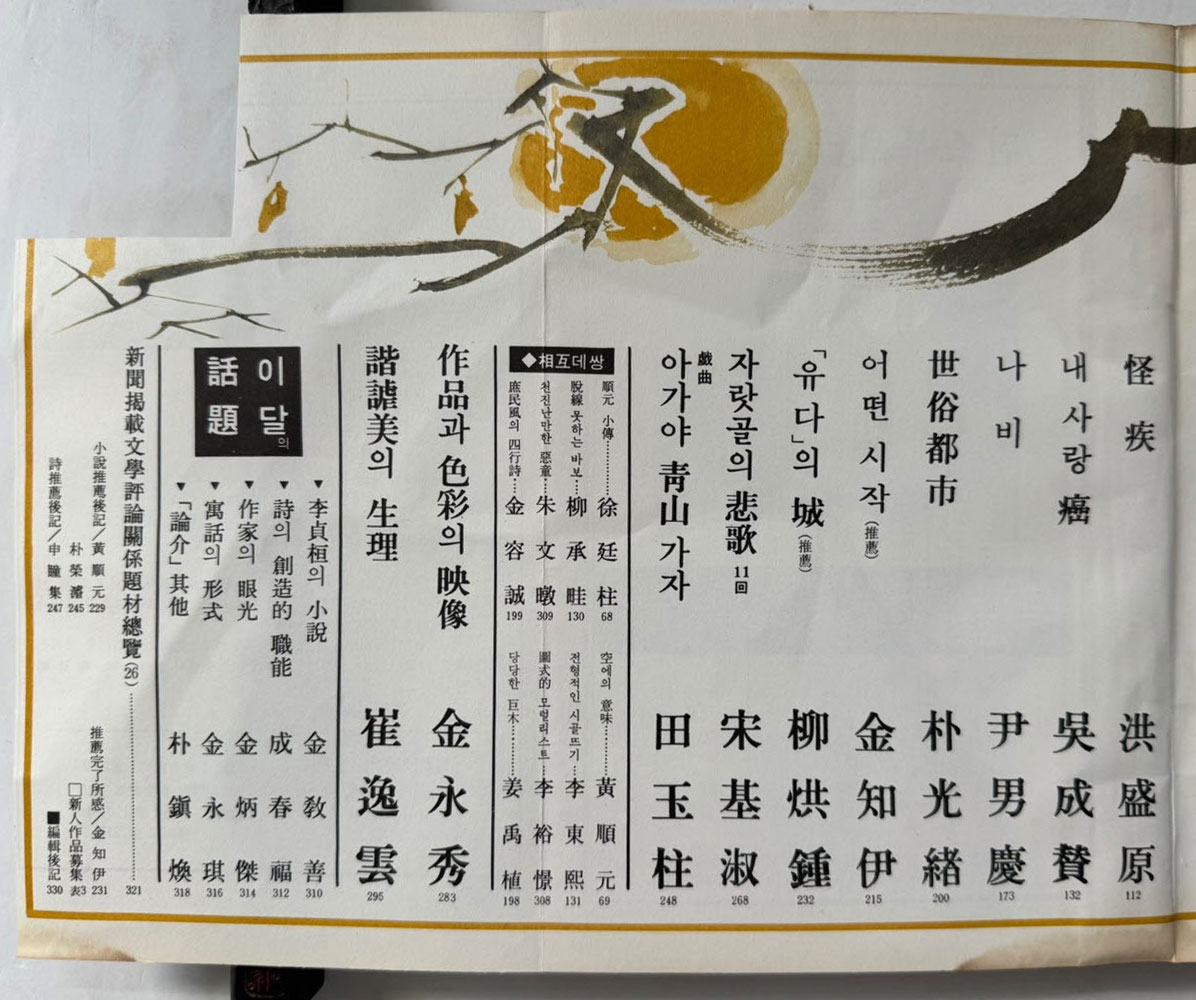 怪疾 洪盛原 112
내사랑 癌 吳成贊 132
나비 尹男慶 173
世俗都市 朴光緖 200
어떤 시작(推薦) 金知伊 215
「유다」의 城(推薦) 柳烘鍾 232
자랏골의 悲歌 11回 宋基淑 268
戱曲
아가야 靑山 가자 田玉柱 248
◆相互데쌍
順元 小傳………徐廷柱 68
空에의 意味………黃順元 69
脫線 못하는 바보…柳承畦 130
전형적인 시골뜨기…李東熙 131
천진난만한 惡童…朱文暾 309
圖式的 모럴리스트…李裕憬 308
庶民風의 四行詩…金容誠 199
당당한 巨木………姜禹植 198
作品과 色彩의 映像 金永秀 283
諧謔美의 生理 崔逸雲 295
이달의
話題
▼李貞桓의 小說 金敎善 310
▼詩의 創造的 職能 成春福 312
▼作家의 眼光 金炳傑 314
▼寓話의 形式 金永琪 316
▼「論介」其他 朴鎭煥 318
新聞揭載文學評論關係題材總覽(26)………321
小說推薦後記／黃順元 229
推薦完了所感／金知伊 231
朴榮濬 245
□新人作品募集 表3
詩推薦後記／申瞳集 247
■編輯後記 330